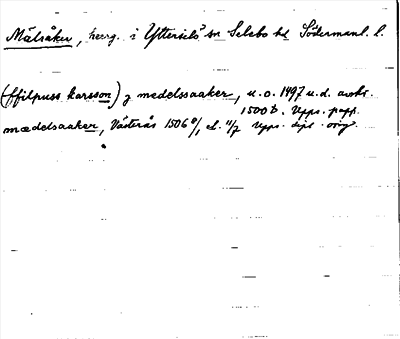 Mälsåker, herrg. i Ytterselö sn Selebo hd Södermanl. l.
(ffilpuss karsson) y medelssaaker, u.o. 1497 u.d. avskr.
1500 b. Upps. papp.
mædelsaaker, Västerås 1506 /, el. 11/7 Upps. dipl. orig.